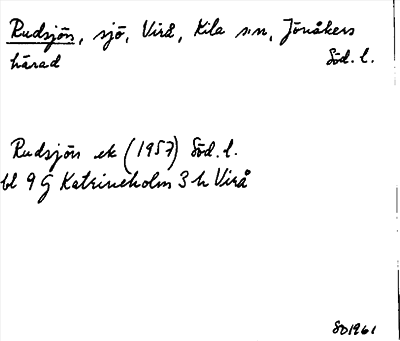 Rudsjön, sjö, Virå, Kila sn, Jönåkers
härad Söd. l.
Rudsjön ek (1957) Söd. l.
bl 9 G Katrineholm 3 h Virå
SD1961